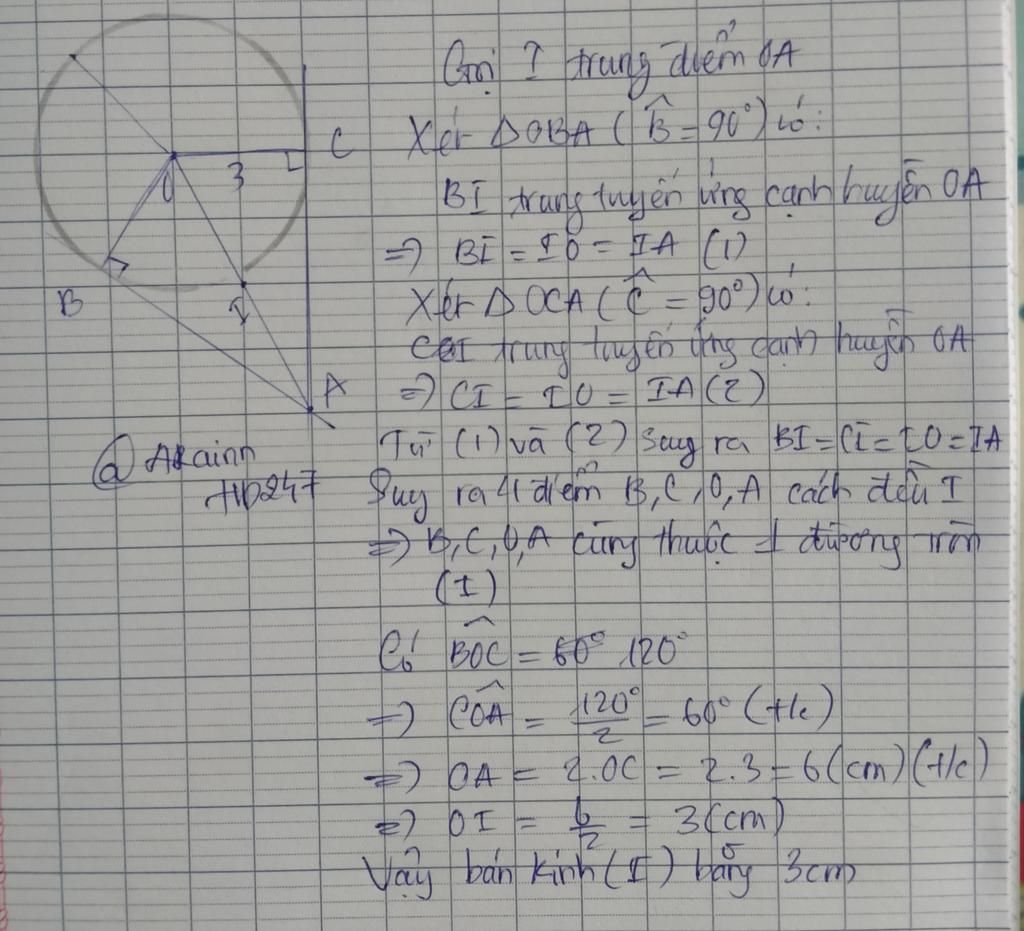 Gọi I trung điểm OA
Xét Δ OBA (B̂ = 90°) có:
BI trung tuyến ứng cạnh huyền OA
=> BI = IO = IA (1)
Xét Δ OCA (Ĉ = 90°) có:
CI trung tuyến ứng cạnh huyền OA
=> CI = IO = IA (2)
Từ (1) và (2) suy ra BI = CI = IO = IA
Suy ra 4 điểm B, C, O, A cách đều I
=> B, C, O, A cùng thuộc 1 đường tròn
(I)
Có BOC = 60° 120°
=> COA = 120°/2 = 60° (t/c)
=> OA = 2.OC = 2.3 = 6 (cm) (t/c)
=> OI = 6/2 = 3 (cm)
Vậy bán kính (I) bằng 3cm
C
O
3
B
I
A
HD247